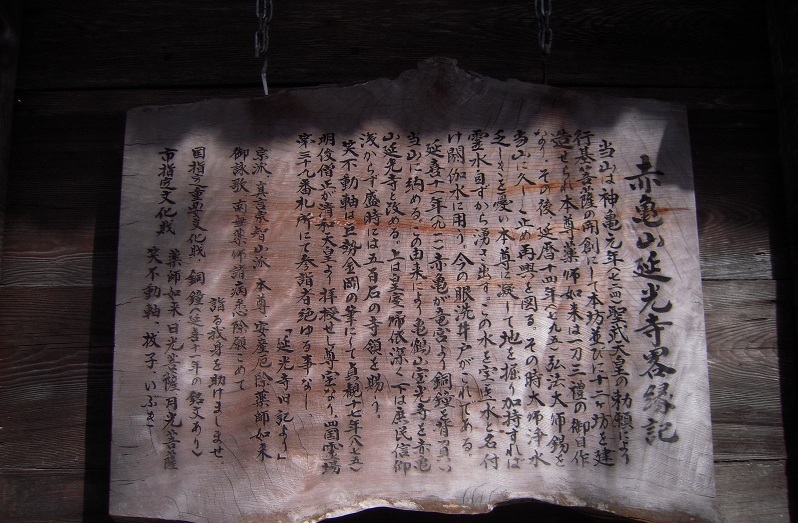 赤亀山延光寺畧縁記
当山は神亀元年(七二四)聖武天皇の勅願により
行基菩薩の開創にして本坊並びに十二ヶ坊を建
造せられ本尊薬師如来は一刀三禮の御自作
なり、その後、延暦十四年(七九五)弘法大師錫を
当山に久しく止め再興を図る。その時大師浄水
乏しきを憂い本尊に祈して地を掘り加持すれば
霊水自ずから湧き出す。この水を宝医水と名付
け閼伽水に用う、今の眼洗井戸がこれである。
延喜十一年(九一一)赤亀が竜宮より銅鐘を背負い
当山に納める。この由来により亀鶴山宝光寺を赤亀
山延光寺と改める。上は皇慶帰依深く、下は庶民信仰
浅からず盛時には五百石の寺領を賜う。
笑不動軸は巨勢金岡の筆にして貞観十七年(八七五)
明俊僧正が清和天皇より拝授せし尊宝なり、四国霊場
第三十九番札所にて参詣者絶ゆる事なし
「延光寺旧記より」
宗派 真言宗智山派 本尊 安産厄除薬師如来
御詠歌 南無薬師諸病悉除願こめて
詣る我身を助けましませ、
国指定重要文化戝 銅鐘(延喜十一年の銘文あり)
薬師如来 日光菩薩 月光菩薩
市指定文化戝 笑不動軸、枚子、いぶき